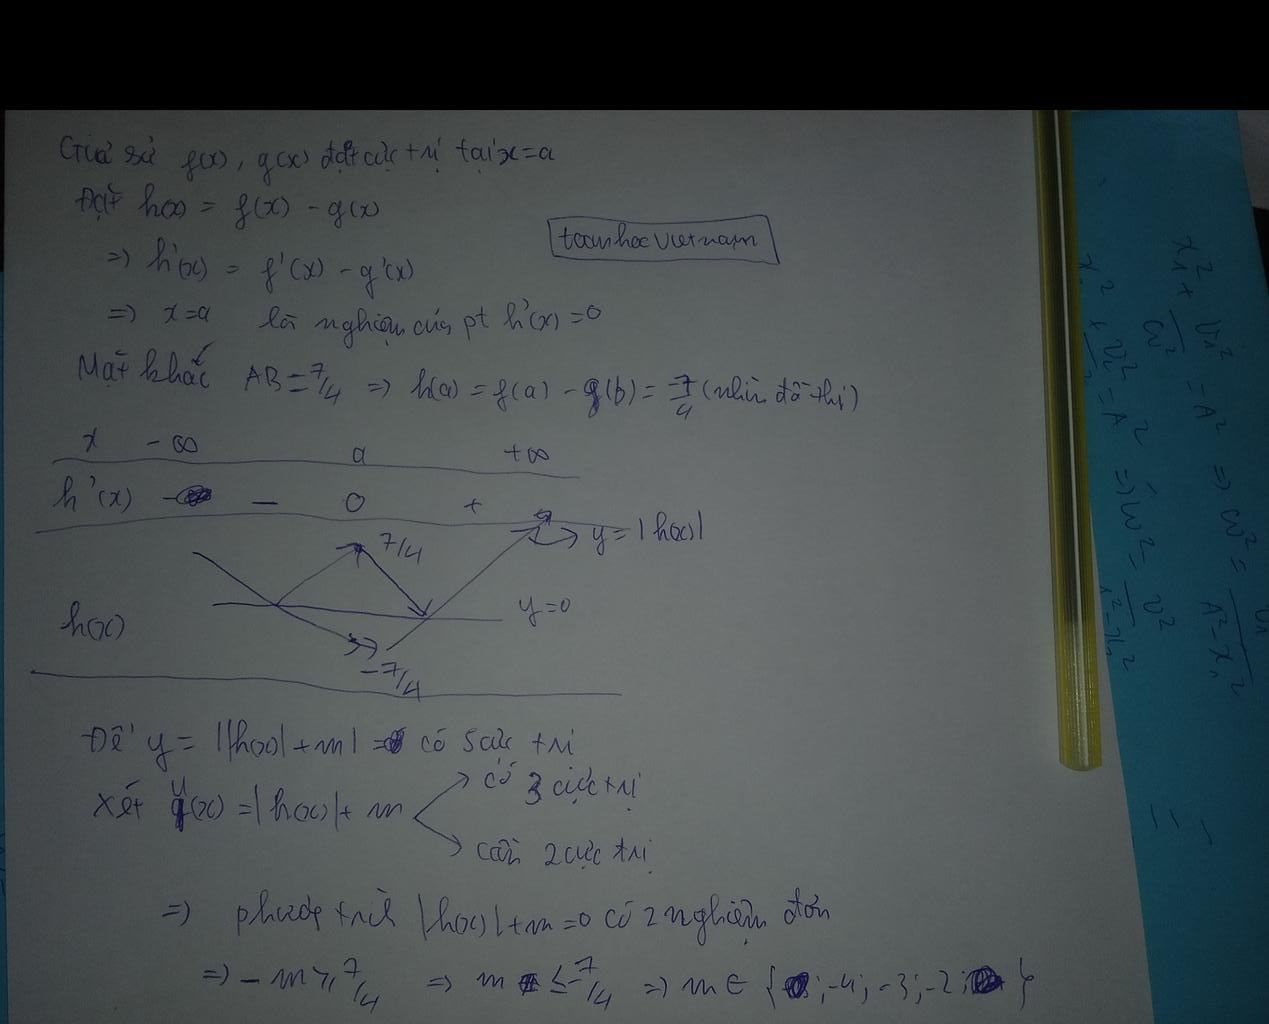 Giả sử f(x), g(x) đạt cực trị tại x=a
Đặt h(x) = f(x) - g(x)
toanhocvietnam
=> h'(x) = f'(x) - g'(x)
=> x=a là nghiệm của pt h'(x)=0
Mặt khác AB = 7/4 => h(a) = f(a) - g(b) = -7/4 (nhìn đồ thị)
x -∞ a +∞
h'(x) - 0 +
7/4 y = |h(x)|
h(x) y=0
-7/4
Để y = ||h(x)| + m| có 5 cực trị
Xét u(x) = |h(x)| + m có 3 cực trị
cần 2 cực trị
=> phương trình |h(x)| + m = 0 có 2 nghiệm đơn
=> -m ≥ 7/4 => m ≤ -7/4 => m ∈ { ; -4; -3; -2; }
x₁² + v₁²/ω² = A² => ω² = v₁²/A²-x₁²